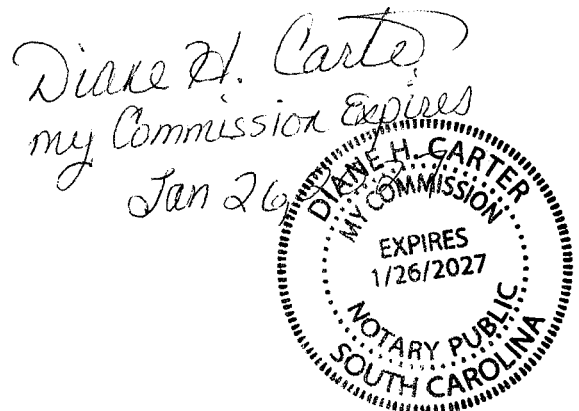 Diane H. Carter
my Commission Expires
Jan 26,
DIANE H. CARTER
MY COMMISSION
EXPIRES
1/26/2027
NOTARY PUBLIC
SOUTH CAROLINA